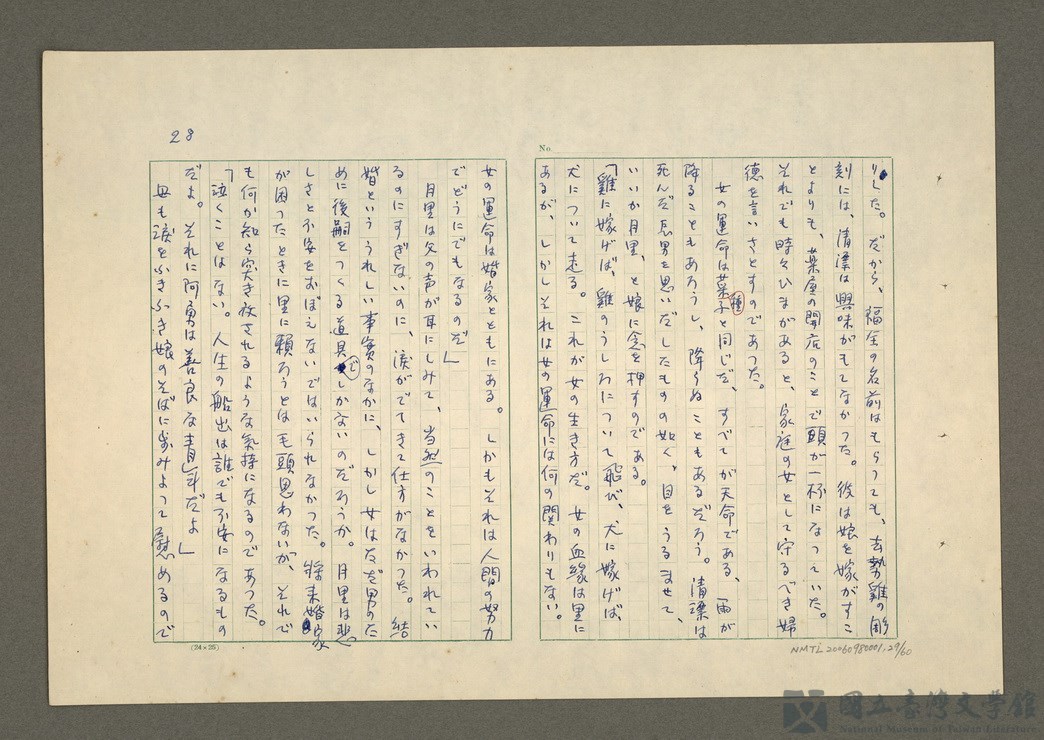 No.
りした。だから、福全の名前はもらっても、去勢雞の彫
刻には、清漂は興味がもてなかった。彼は娘を嫁がすこ
とよりも、薬屋の開店のことで頭が一杯になっていた。
それでも時々ひまがあると、家庭の女として守るべき婦
徳を言いさとすのであった。
女の運命は菜種子と同じだ、すべてが天命である、雨が
降ることもあろうし、降らぬこともあるだろう。清漂は
死んだ長男を思いだしたものの如く、目をうるませて、
いいか月里、と娘に念を押すのである。
「雞に嫁げば、雞のうしろについて飛び、犬に嫁げば、
犬について走る。これが女の生き方だ。女の血縁は里に
あるが、しかしそれは女の運命には何の関わりもない。
女の運命は婚家とともにある。しかもそれは人間の努力
でどうにでもなるのだ」
月里は父の声が耳にしみて、当然のことをいわれてい
るのにすぎないのに、涙がでてきて仕方がなかった。結
婚といううれしい事実のなかに、しかし女はただ男のた
めに後嗣をつくる道具でしかないのだろうか。月里は悲
しさと不安をおぼえないではいられなかった。将来婚家
が困ったときに里に頼ろうとは毛頭思わないが、それで
も何か知ら突き放されるような気持になるのであった。
「泣くことはない。人生の船出は誰でも不安になるもの
だよ。それに阿勇は善良な青年だよ」
母も涙をふきふき娘のそばに歩みよって慰めるので
28
(24×25)
NMTL20060980001.29/60
國立臺灣文學館
National Museum of Taiwan Literature